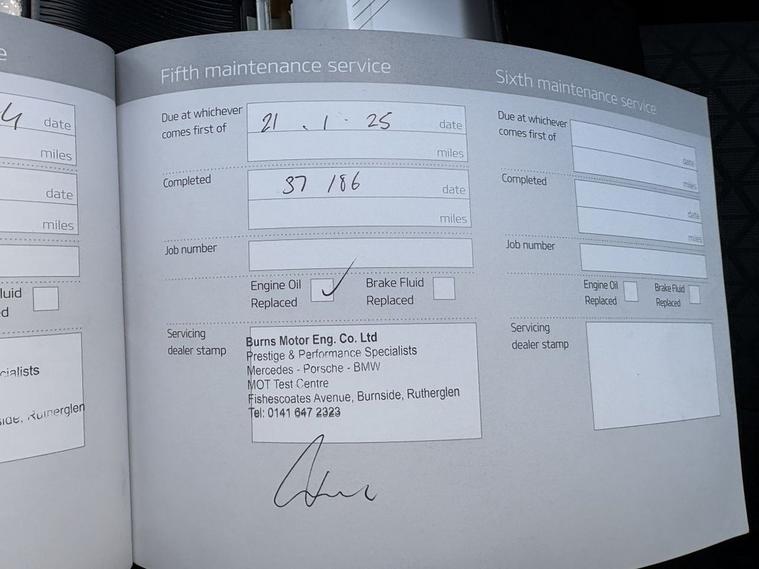 e
4 date
miles
date
miles
luid
d
cialists
side, Rutherglen
Fifth maintenance service
Due at whichever
comes first of
21 . 1 . 25 date
miles
Completed
37 186 date
miles
Job number
Engine Oil
Replaced
Brake Fluid
Replaced
Servicing
dealer stamp
Burns Motor Eng. Co. Ltd
Prestige & Performance Specialists
Mercedes - Porsche - BMW
MOT Test Centre
Fishescoates Avenue, Burnside, Rutherglen
Tel: 0141 647 2323
Sixth maintenance service
Due at whichever
comes first of
date
miles
Completed
date
miles
Job number
Engine Oil
Replaced
Brake Fluid
Replaced
Servicing
dealer stamp